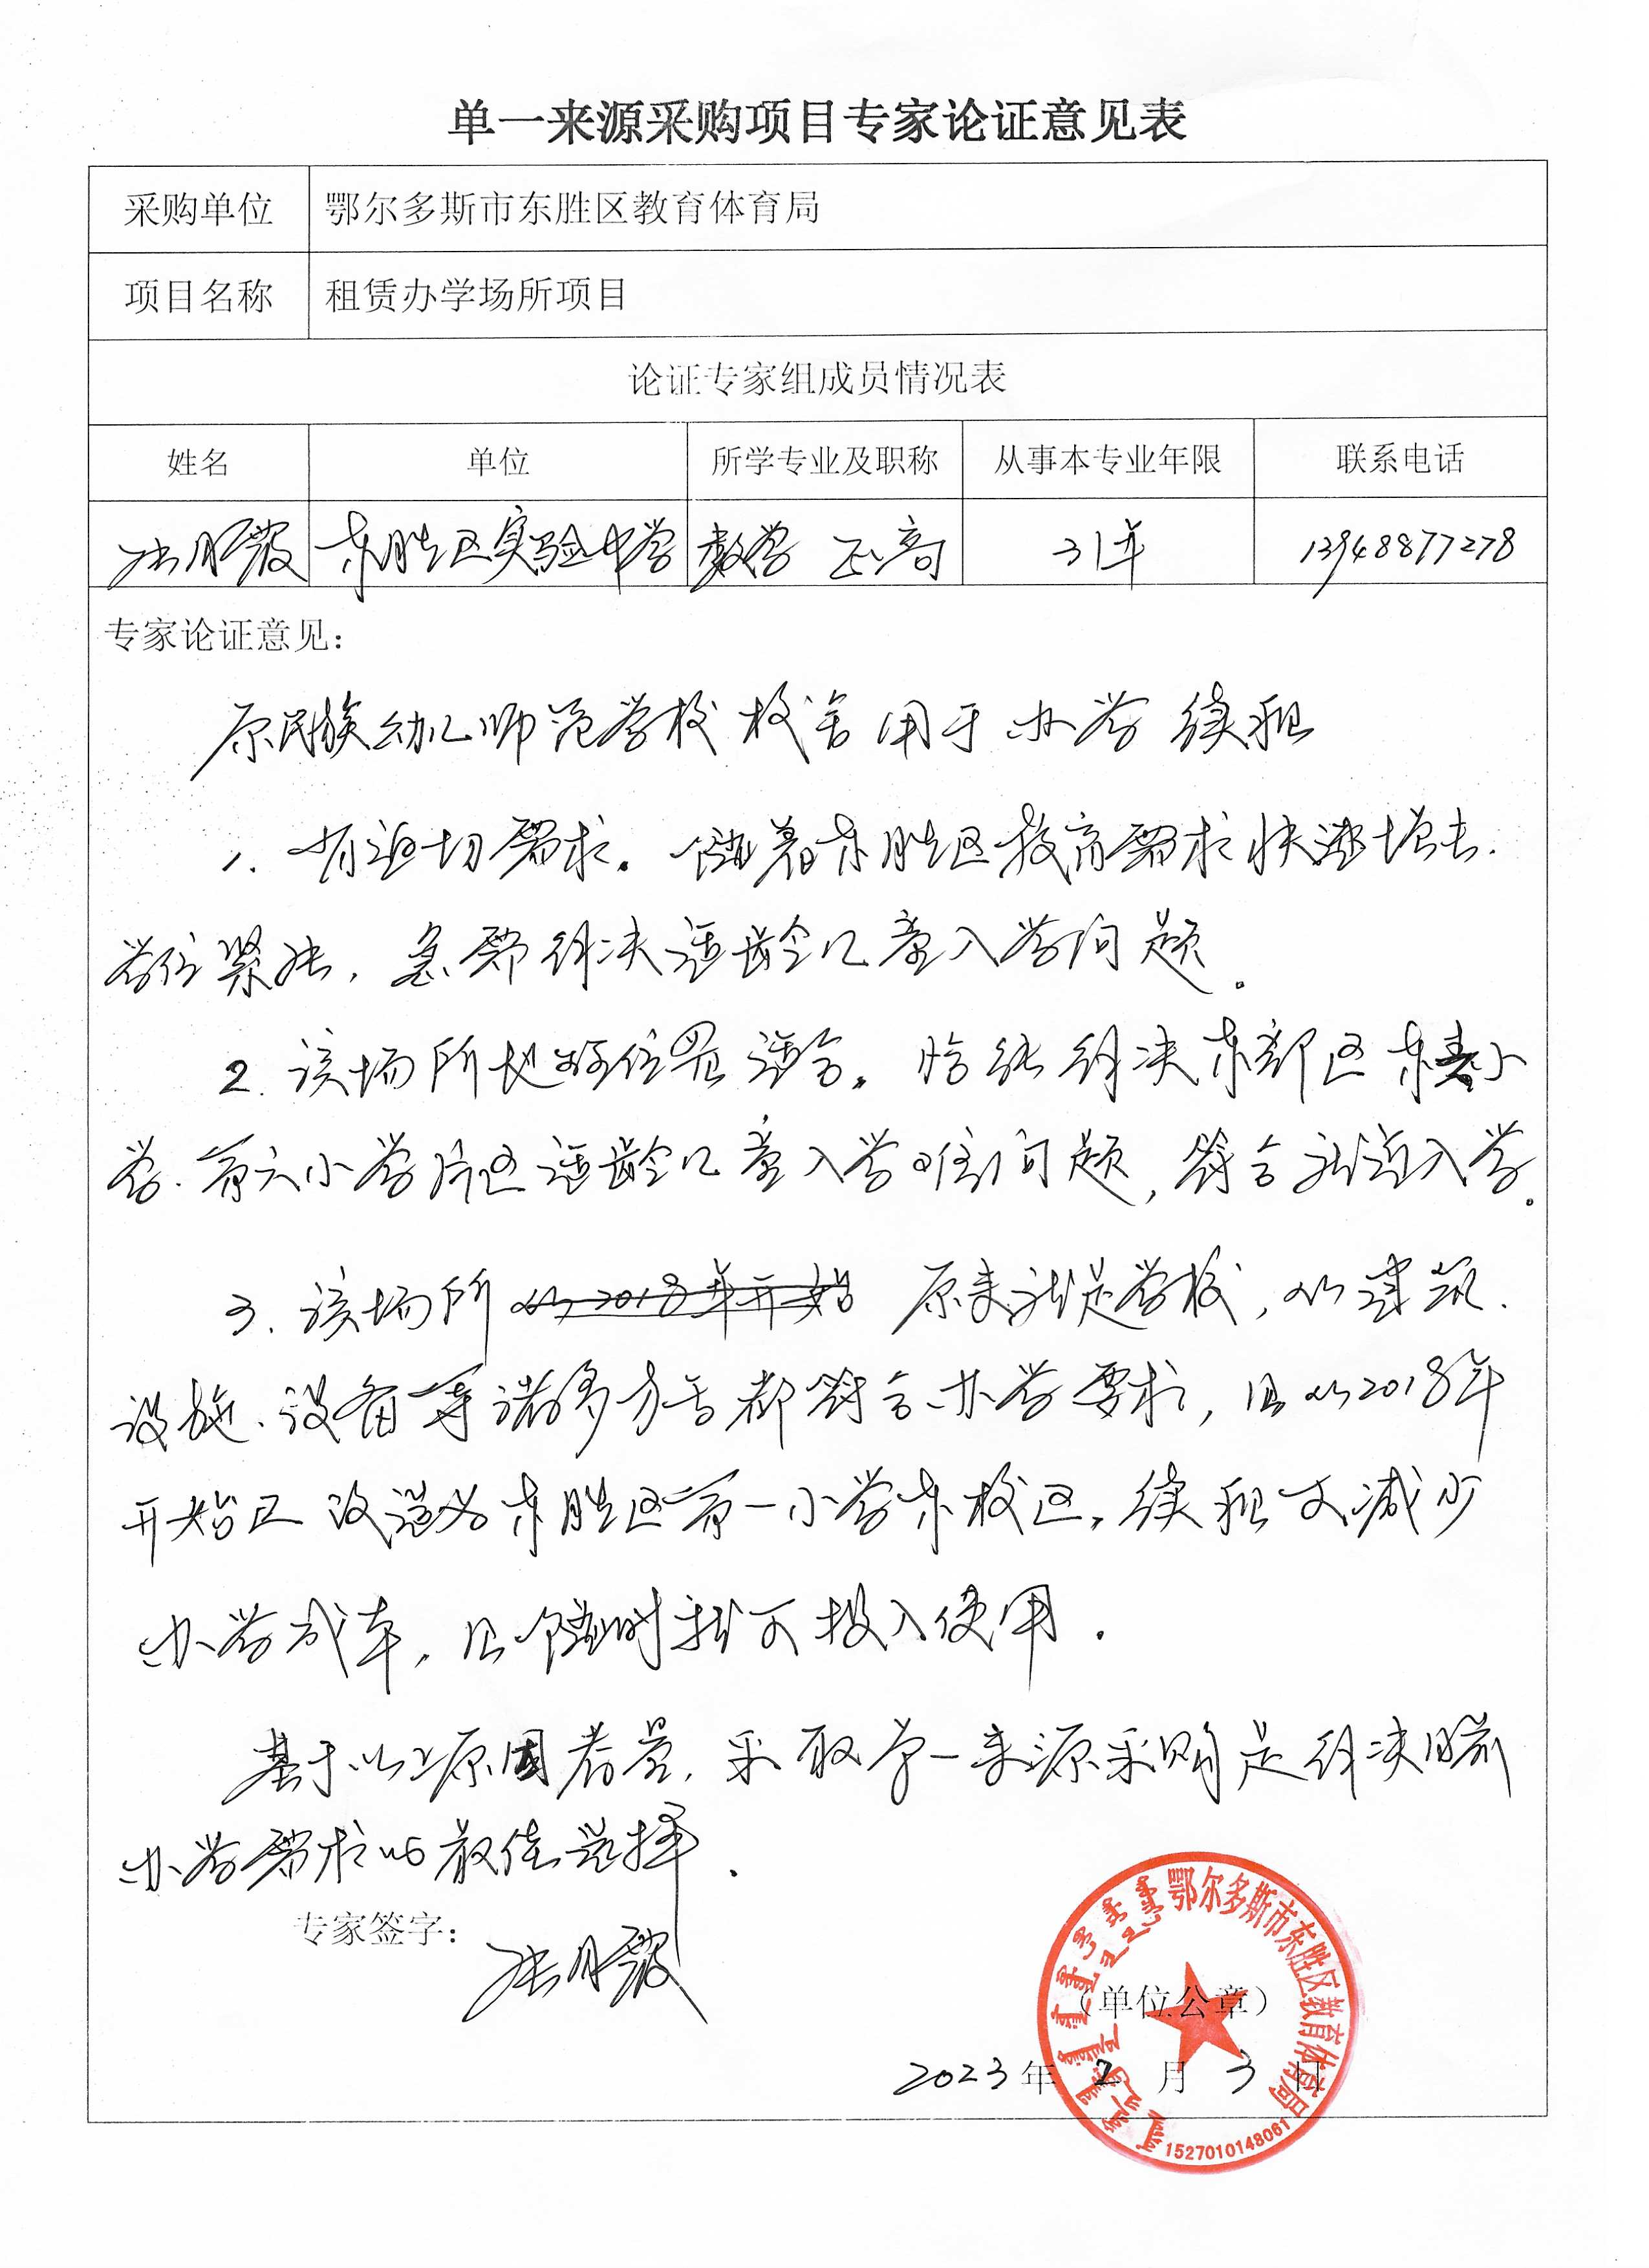 单一来源采购项目专家论证意见表
采购单位 鄂尔多斯市东胜区教育体育局
项目名称 租赁办学场所项目
论证专家组成员情况表
姓名 单位 所学专业及职称 从事本专业年限 联系电话
张月霞 东胜区实验中学 数学 正高 31年 13948877278
专家论证意见：
原民族幼儿师范学校校舍用于办学续租
1. 有迫切需求。随着东胜区教育需求快速增长.
学位紧张，急需解决适龄儿童入学问题。
2. 该场所地理位置适合。恰能解决东部区东青小
学、第六小学片区适龄儿童入学难问题，符合就近入学。
3. 该场所 从2018年开始 原来就是学校，从建筑、
设施、设备等诸多方面都符合办学要求，且从2018年
开始已改造为东胜区第一小学东校区。续租又减少
办学成本，且随时就可投入使用.
基于以上原因考量，采取单一来源采购是解决目前
办学需求的最佳选择.
专家签字： 张月霞
鄂尔多斯市东胜区教育体育局
（单位公章）
2023 年 2 月 3 日
1527010148061